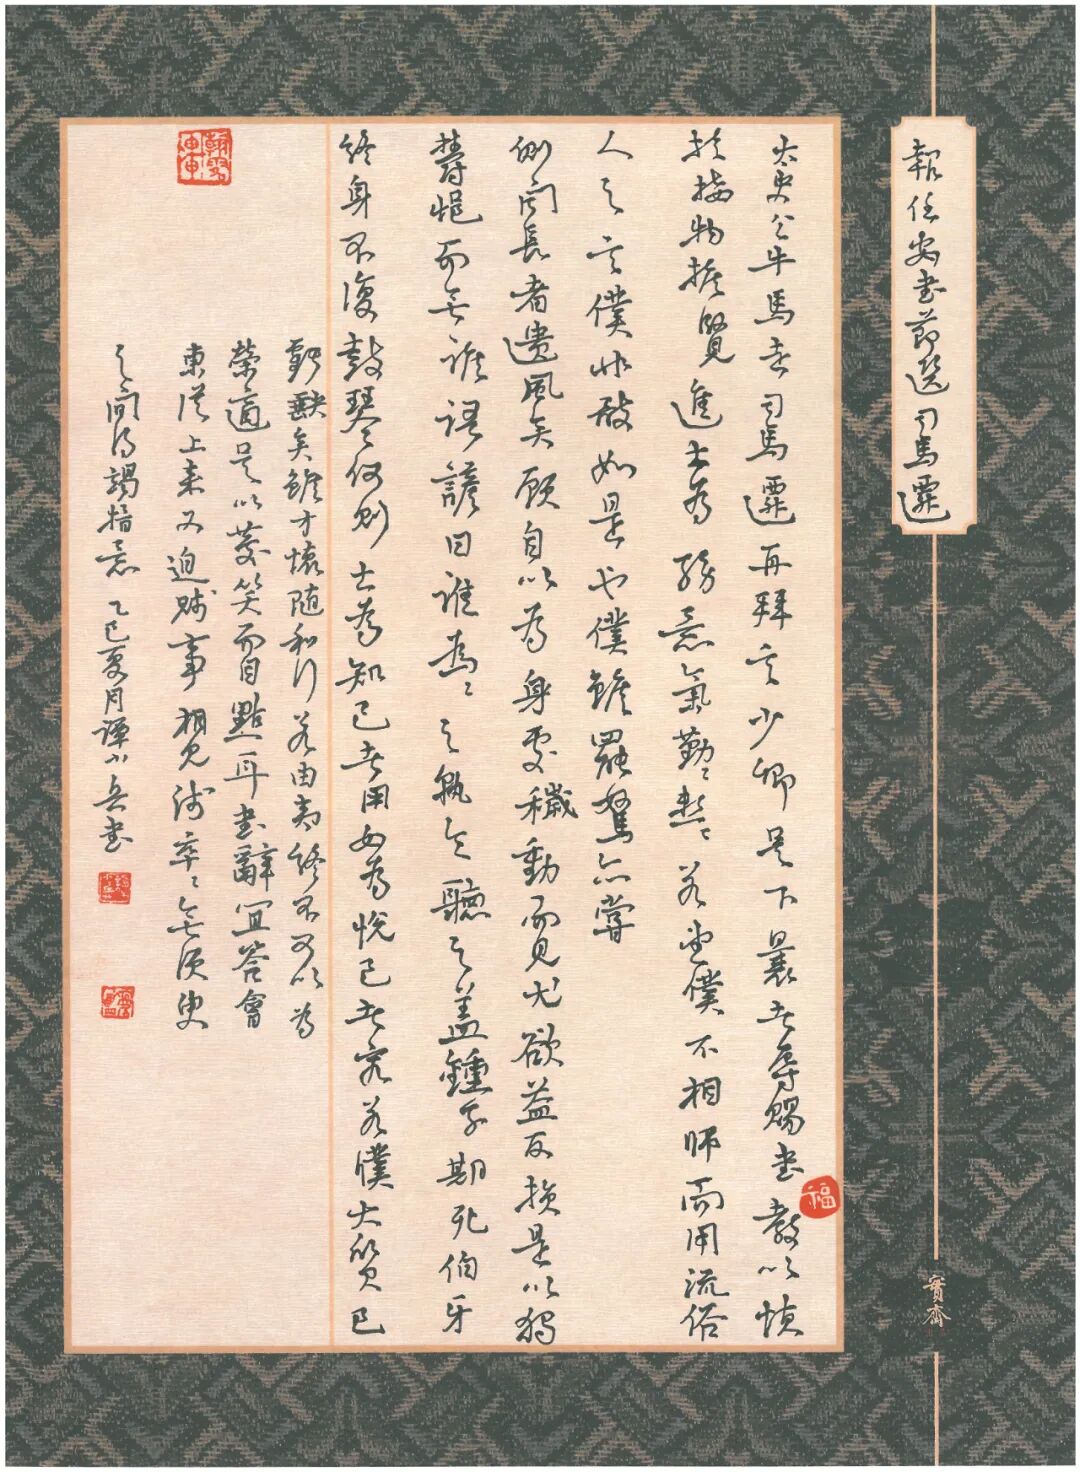 報任安書節選 司馬遷
太史公牛馬走司馬遷再拜言少卿足下曩者辱賜書教以慎
於接物推賢進士為務意氣勤〻懇〻若望僕不相師而用流俗
人之言僕非敢如是也僕雖罷駑亦嘗
側聞長者遺風矣顧自以為身處穢動而見尤欲益反損是以獨
鬱悒而無誰語諺曰誰為〻之孰令聽之蓋鍾子期死伯牙
終身不復鼓琴何則士為知己者用女為悅己者容若僕大質已
虧缺矣雖才懷隨和行若由夷終不可以為
榮適足以發笑而自點耳書辭宜答會
東從上來又迫賤事相見淺卒〻無須臾
之間得竭指意 乙巳夏月譚小兵書
福
寶齋